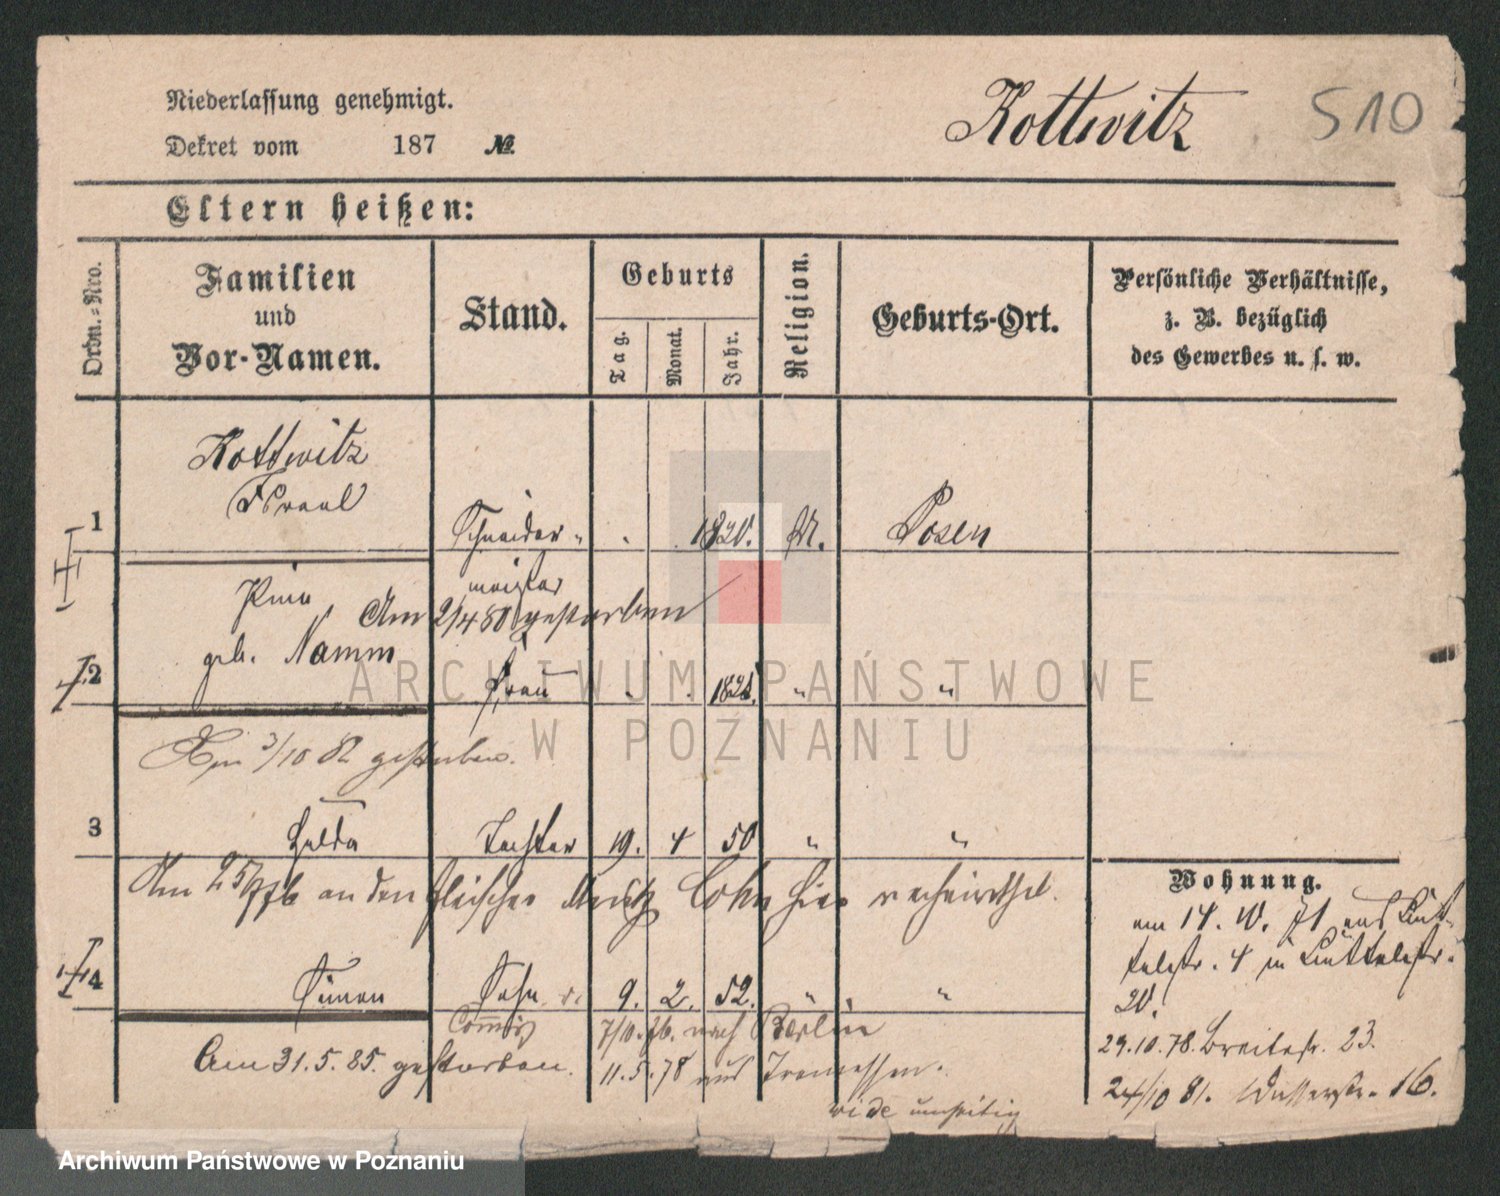 Niederlassung genehmigt.
Dekret vom 187 №
Kottwitz
510
Eltern heißen:
Ordn.-Nro.
Familien
und
Vor-Namen.
Stand.
Geburts
Tag.
Monat.
Jahr.
Religion.
Geburts-Ort.
Persönliche Verhältnisse,
z. B. bezüglich
des Gewerbes u. s. w.
Kottwitz
1 Schneider- 1820. M. Posen
meister
Am 2/4 80 gestorben
geb. Namm
2 Frau " "
Am 3/10 82 gestorben.
3 Hulda Tochter 19. 4 50 " "
Am 25/7 76 an den Fleischer Cohn hier verheirathet.
Wohnung.
am 14. 10. 71 aus
telstr. 4 in
20.
4 Simon Sohn 9. 2. 52. " "
Commis 7/10. 76. nach Berlin
Am 31. 5. 85. gestorben. 11. 5. 78 aus Tremessen.
29. 10. 78. Breitestr. 23.
24/10 81. Wasserstr. 16.
vide umseitig
ARCHIWUM PAŃSTWOWE
W POZNANIU
Archiwum Państwowe w Poznaniu